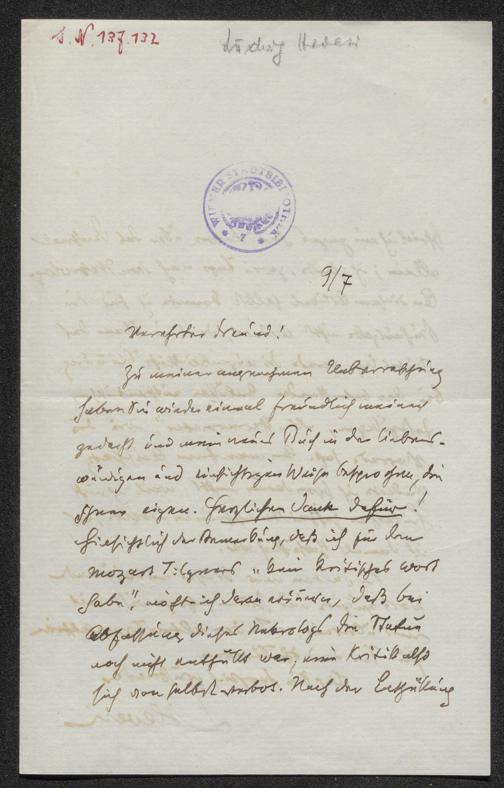 J. N. 137.132
Ludwig Hevesi
WIENER STADTBIBLIOTHEK
9/7
Verehrter Freund!
Zu meiner angenehmen Ueberraschung
haben Sie wieder einmal freundlich meiner
gedacht und mein neues Buch in der liebens-
würdigen und einsichtigen Weise besprochen, die
Ihnen eigen. Herzlichen Dank dafür!
Hinsichtlich der Bemerkung, daß ich für den
Mozart Tilgners "kein kritisches Wort
habe", möchte ich daran erinnern, daß bei
Abfassung dieses Nekrologs die Statue
noch nicht enthüllt war, eine Kritik also
sich von selbst verbot. Nach der Enthüllung